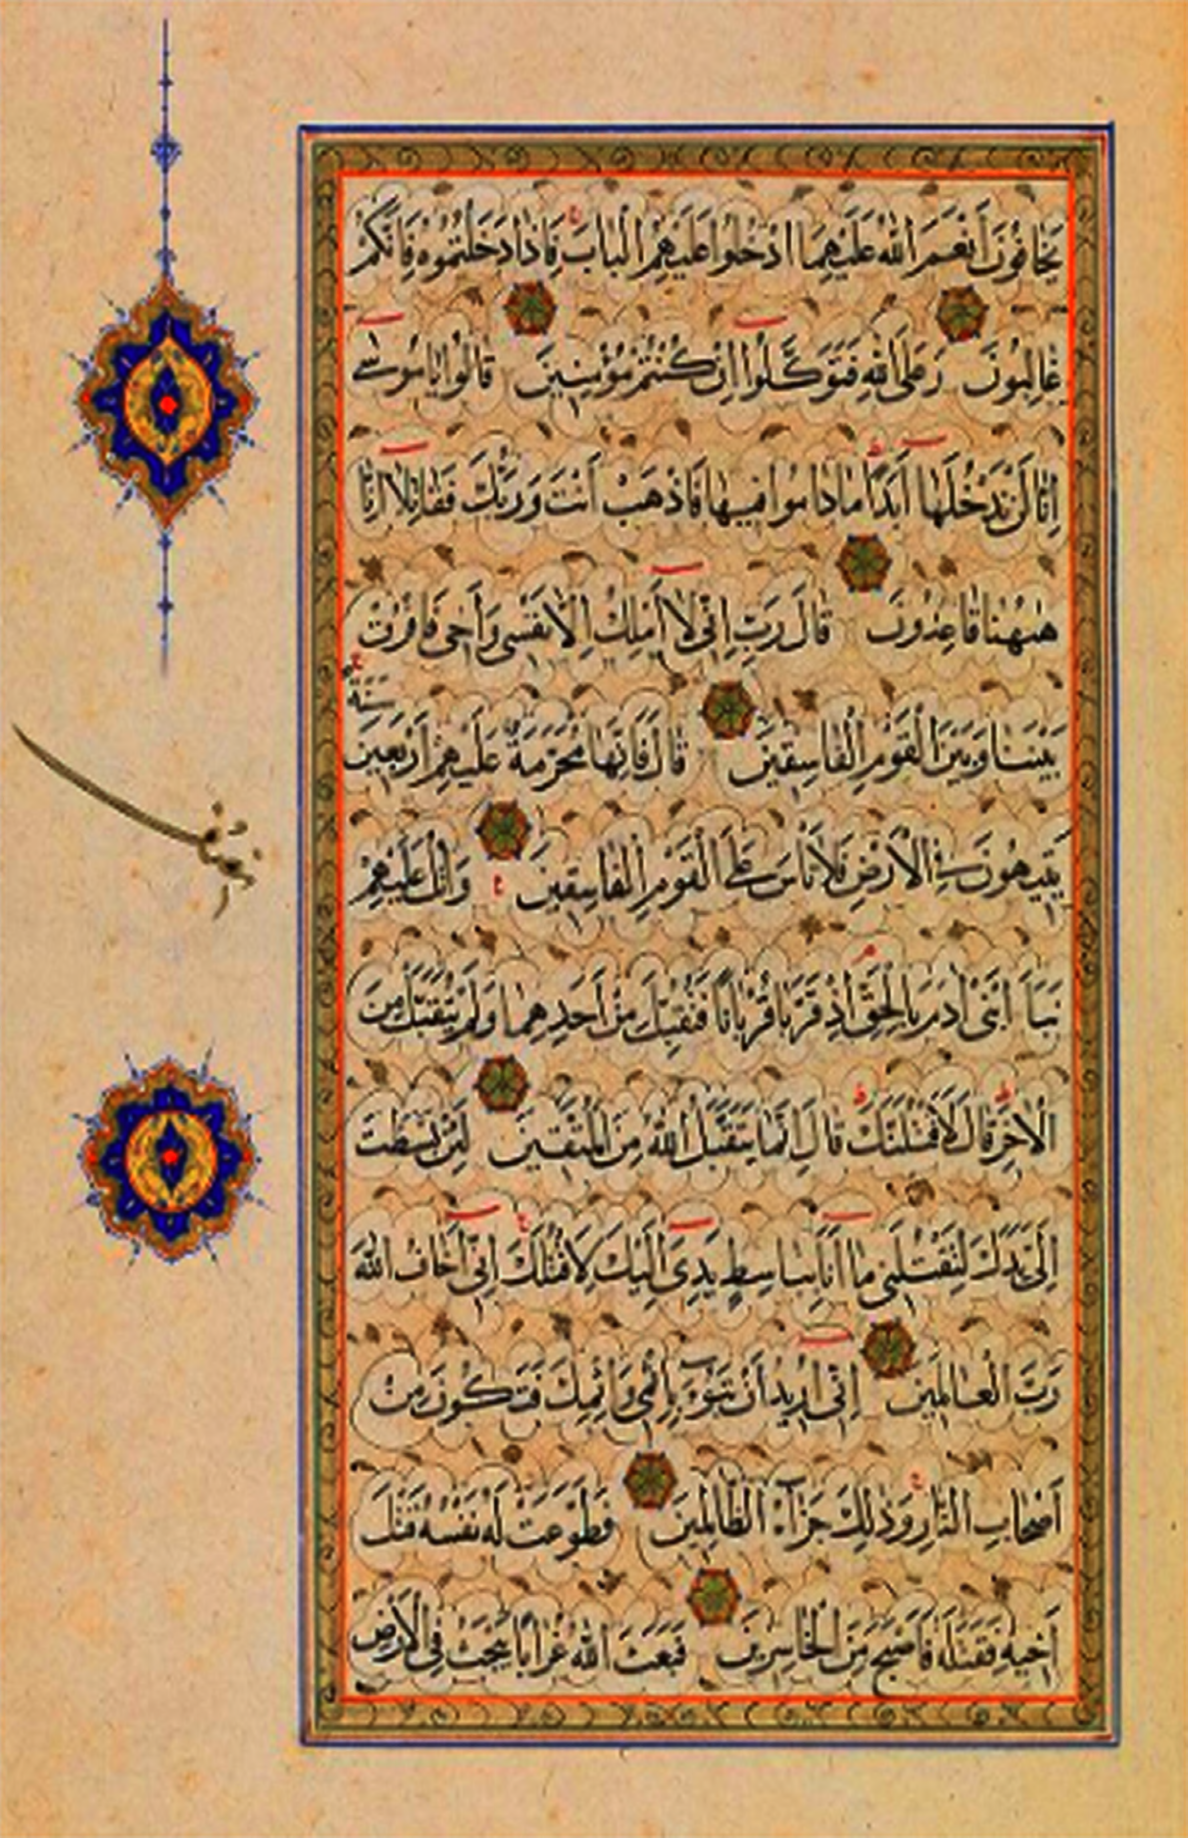 يَخَافُونَ أَنْعَمَ اللَّهُ عَلَيْهِمَا ادْخُلُوا عَلَيْهِمُ الْبَابَ فَإِذَا دَخَلْتُمُوهُ فَإِنَّكُمْ
غَالِبُونَ وَعَلَى اللَّهِ فَتَوَكَّلُوا إِنْ كُنْتُمْ مُؤْمِنِينَ قَالُوا يَامُوسَى
إِنَّا لَنْ نَدْخُلَهَا أَبَدًا مَادَامُوا فِيهَا فَاذْهَبْ أَنْتَ وَرَبُّكَ فَقَاتِلَا إِنَّا
هٰهُنَا قَاعِدُونَ قَالَ رَبِّ إِنِّي لَا أَمْلِكُ إِلَّا نَفْسِي وَأَخِي فَافْرُقْ
بَيْنَنَا وَبَيْنَ الْقَوْمِ الْفَاسِقِينَ قَالَ فَإِنَّهَا مُحَرَّمَةٌ عَلَيْهِمْ أَرْبَعِينَ سَنَةً
يَتِيهُونَ فِي الْأَرْضِ فَلَا تَأْسَ عَلَى الْقَوْمِ الْفَاسِقِينَ وَاتْلُ عَلَيْهِمْ
نَبَأَ ابْنَيْ آدَمَ بِالْحَقِّ إِذْ قَرَّبَا قُرْبَانًا فَتُقُبِّلَ مِنْ أَحَدِهِمَا وَلَمْ يُتَقَبَّلْ مِنَ
الْآخَرِ قَالَ لَأَقْتُلَنَّكَ قَالَ إِنَّمَا يَتَقَبَّلُ اللَّهُ مِنَ الْمُتَّقِينَ لَئِنْ بَسَطْتَ
إِلَيَّ يَدَكَ لِتَقْتُلَنِي مَا أَنَا بِبَاسِطٍ يَدِيَ إِلَيْكَ لِأَقْتُلَكَ إِنِّي أَخَافُ اللَّهَ
رَبَّ الْعَالَمِينَ إِنِّي أُرِيدُ أَنْ تَبُوءَ بِإِثْمِي وَإِثْمِكَ فَتَكُونَ مِنْ
أَصْحَابِ النَّارِ وَذَٰلِكَ جَزَاءُ الظَّالِمِينَ فَطَوَّعَتْ لَهُ نَفْسُهُ قَتْلَ
أَخِيهِ فَقَتَلَهُ فَأَصْبَحَ مِنَ الْخَاسِرِينَ فَبَعَثَ اللَّهُ غُرَابًا يَبْحَثُ فِي الْأَرْضِ